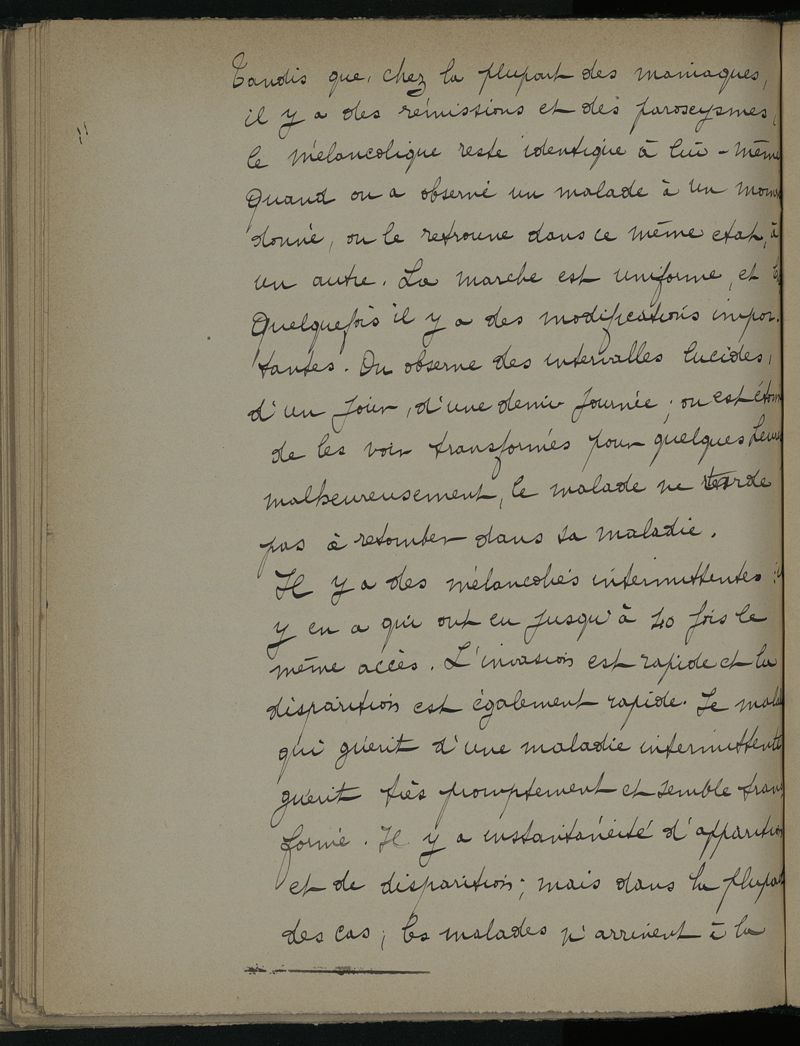 Tandis que, chez la plupart des maniaques,
il y a des rémissions et des paroxysmes,
le mélancolique reste identique à lui-même
Quand on a observé un malade à un mom
donné, on le retrouve dans ce même état, à
un autre. La marche est uniforme, et
Quelquefois il y a des modifications impor-
tantes. On observe des intervalles lucides,
d'un jour, d'une demie journée ; on est éton
de les voir transformés pour quelques heur
malheureusement, le malade ne tarde
pas à retomber dans sa maladie.
Il y a des mélancolies intermittentes : il
y en a qui ont eu jusqu'à 40 fois le
même accès. L'invasion est rapide et la
disparition est également rapide. Le mala
qui guérit d'une maladie intermittente
guérit très promptement et semble trans
formé. Il y a instantanéité d'apparition
et de disparition ; mais dans la plupa
des cas, les malades n'arrivent à la